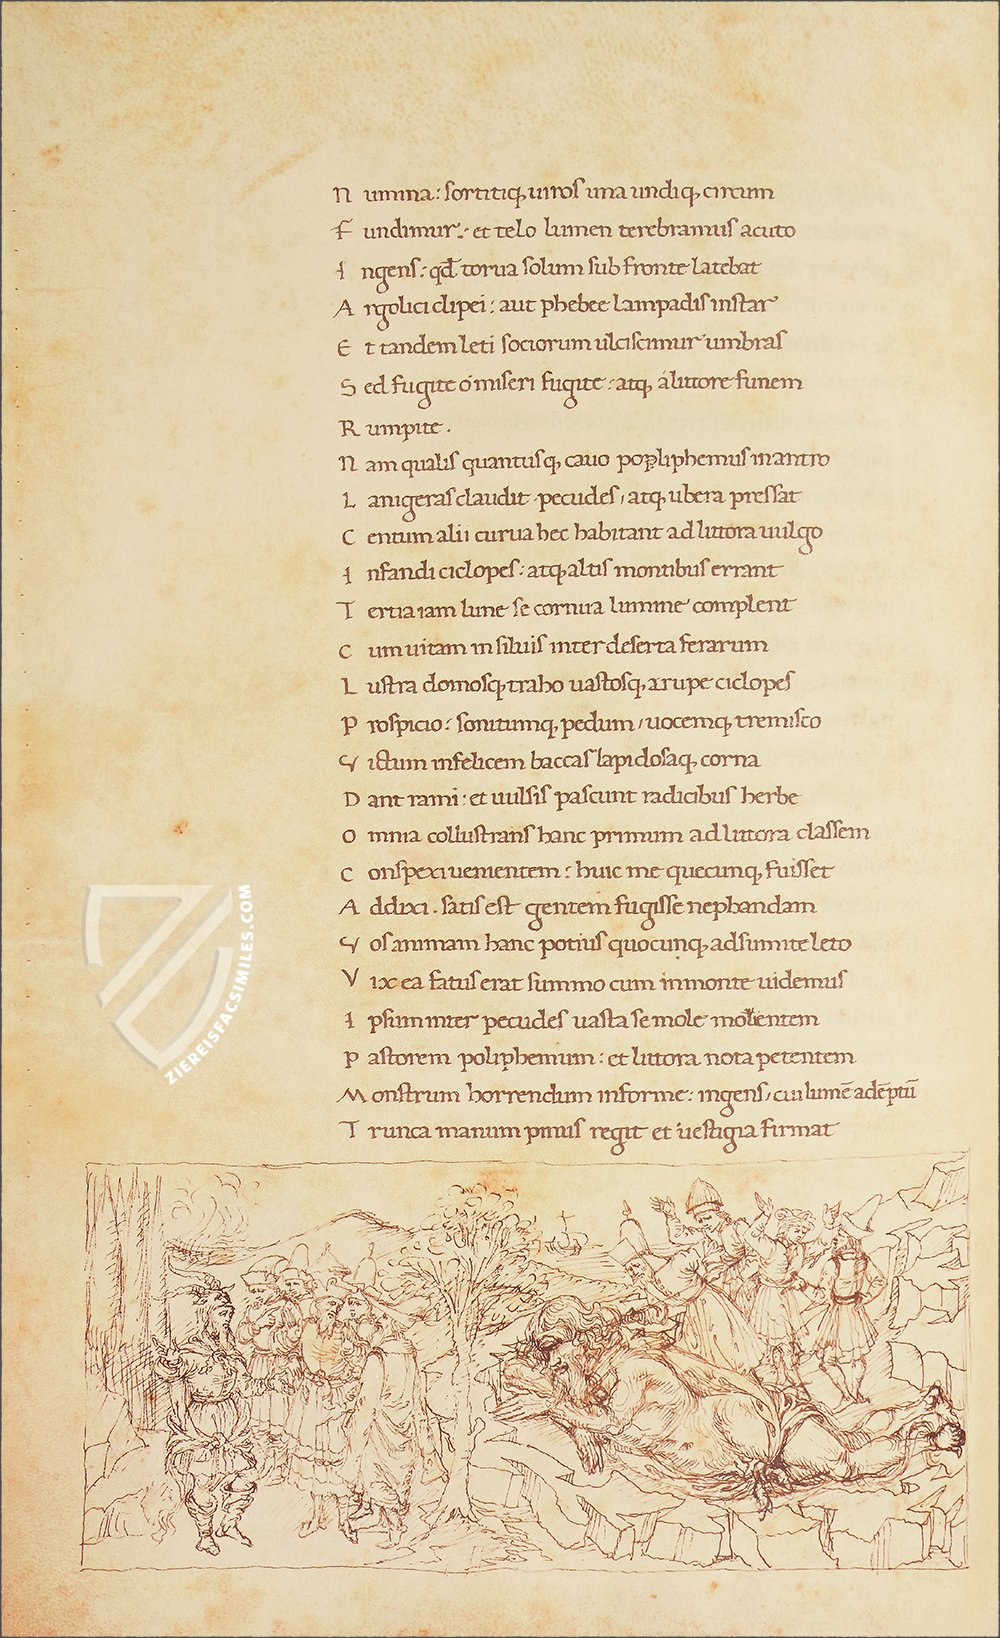 N umina: sortitiq, uiros una undiq, circum
F undimur: et telo lumen terebramus acuto
I ngens: qđ torua solum sub fronte latebat
A rgolici clipei: aut phebee lampadis instar
E t tandem leti sociorum ulciscimur umbras
S ed fugite o miseri fugite: atq, a littore funem
R umpite.
N am qualis quantusq, cauo poliphemus in antro
L anigeras claudit pecudes, atq, ubera pressat
C entum alii curua hec habitant ad littora uulgo
I nfandi ciclopes: atq, altis montibus errant
T ertia iam lune se cornua lumine complent
C um uitam in siluis inter deserta ferarum
L ustra domosq, traho uastosq, a rupe ciclopes
P rospicio: sonitumq, pedum, uocemq, tremisco
V ictum infelicem baccas lapidosaq, corna
D ant rami: et uulsis pascunt radicibus herbe
O mnia collustrans hanc primum ad littora classem
C onspexi uenientem: huic me quecunq, fuisset
A ddixi. satis est gentem fugisse nephandam
V os animam hanc potius quocunq, adsumite leto
V ix ea fatus erat summo cum in monte uidemus
I psum inter pecudes uasta se mole mouentem
P astorem poliphemum: et littora nota petentem
M onstrum horrendum informe: ingens, cui lumē adēptū
T runca manum pinus regit et uestigia firmat
ZIEREISFACSIMILES.COM